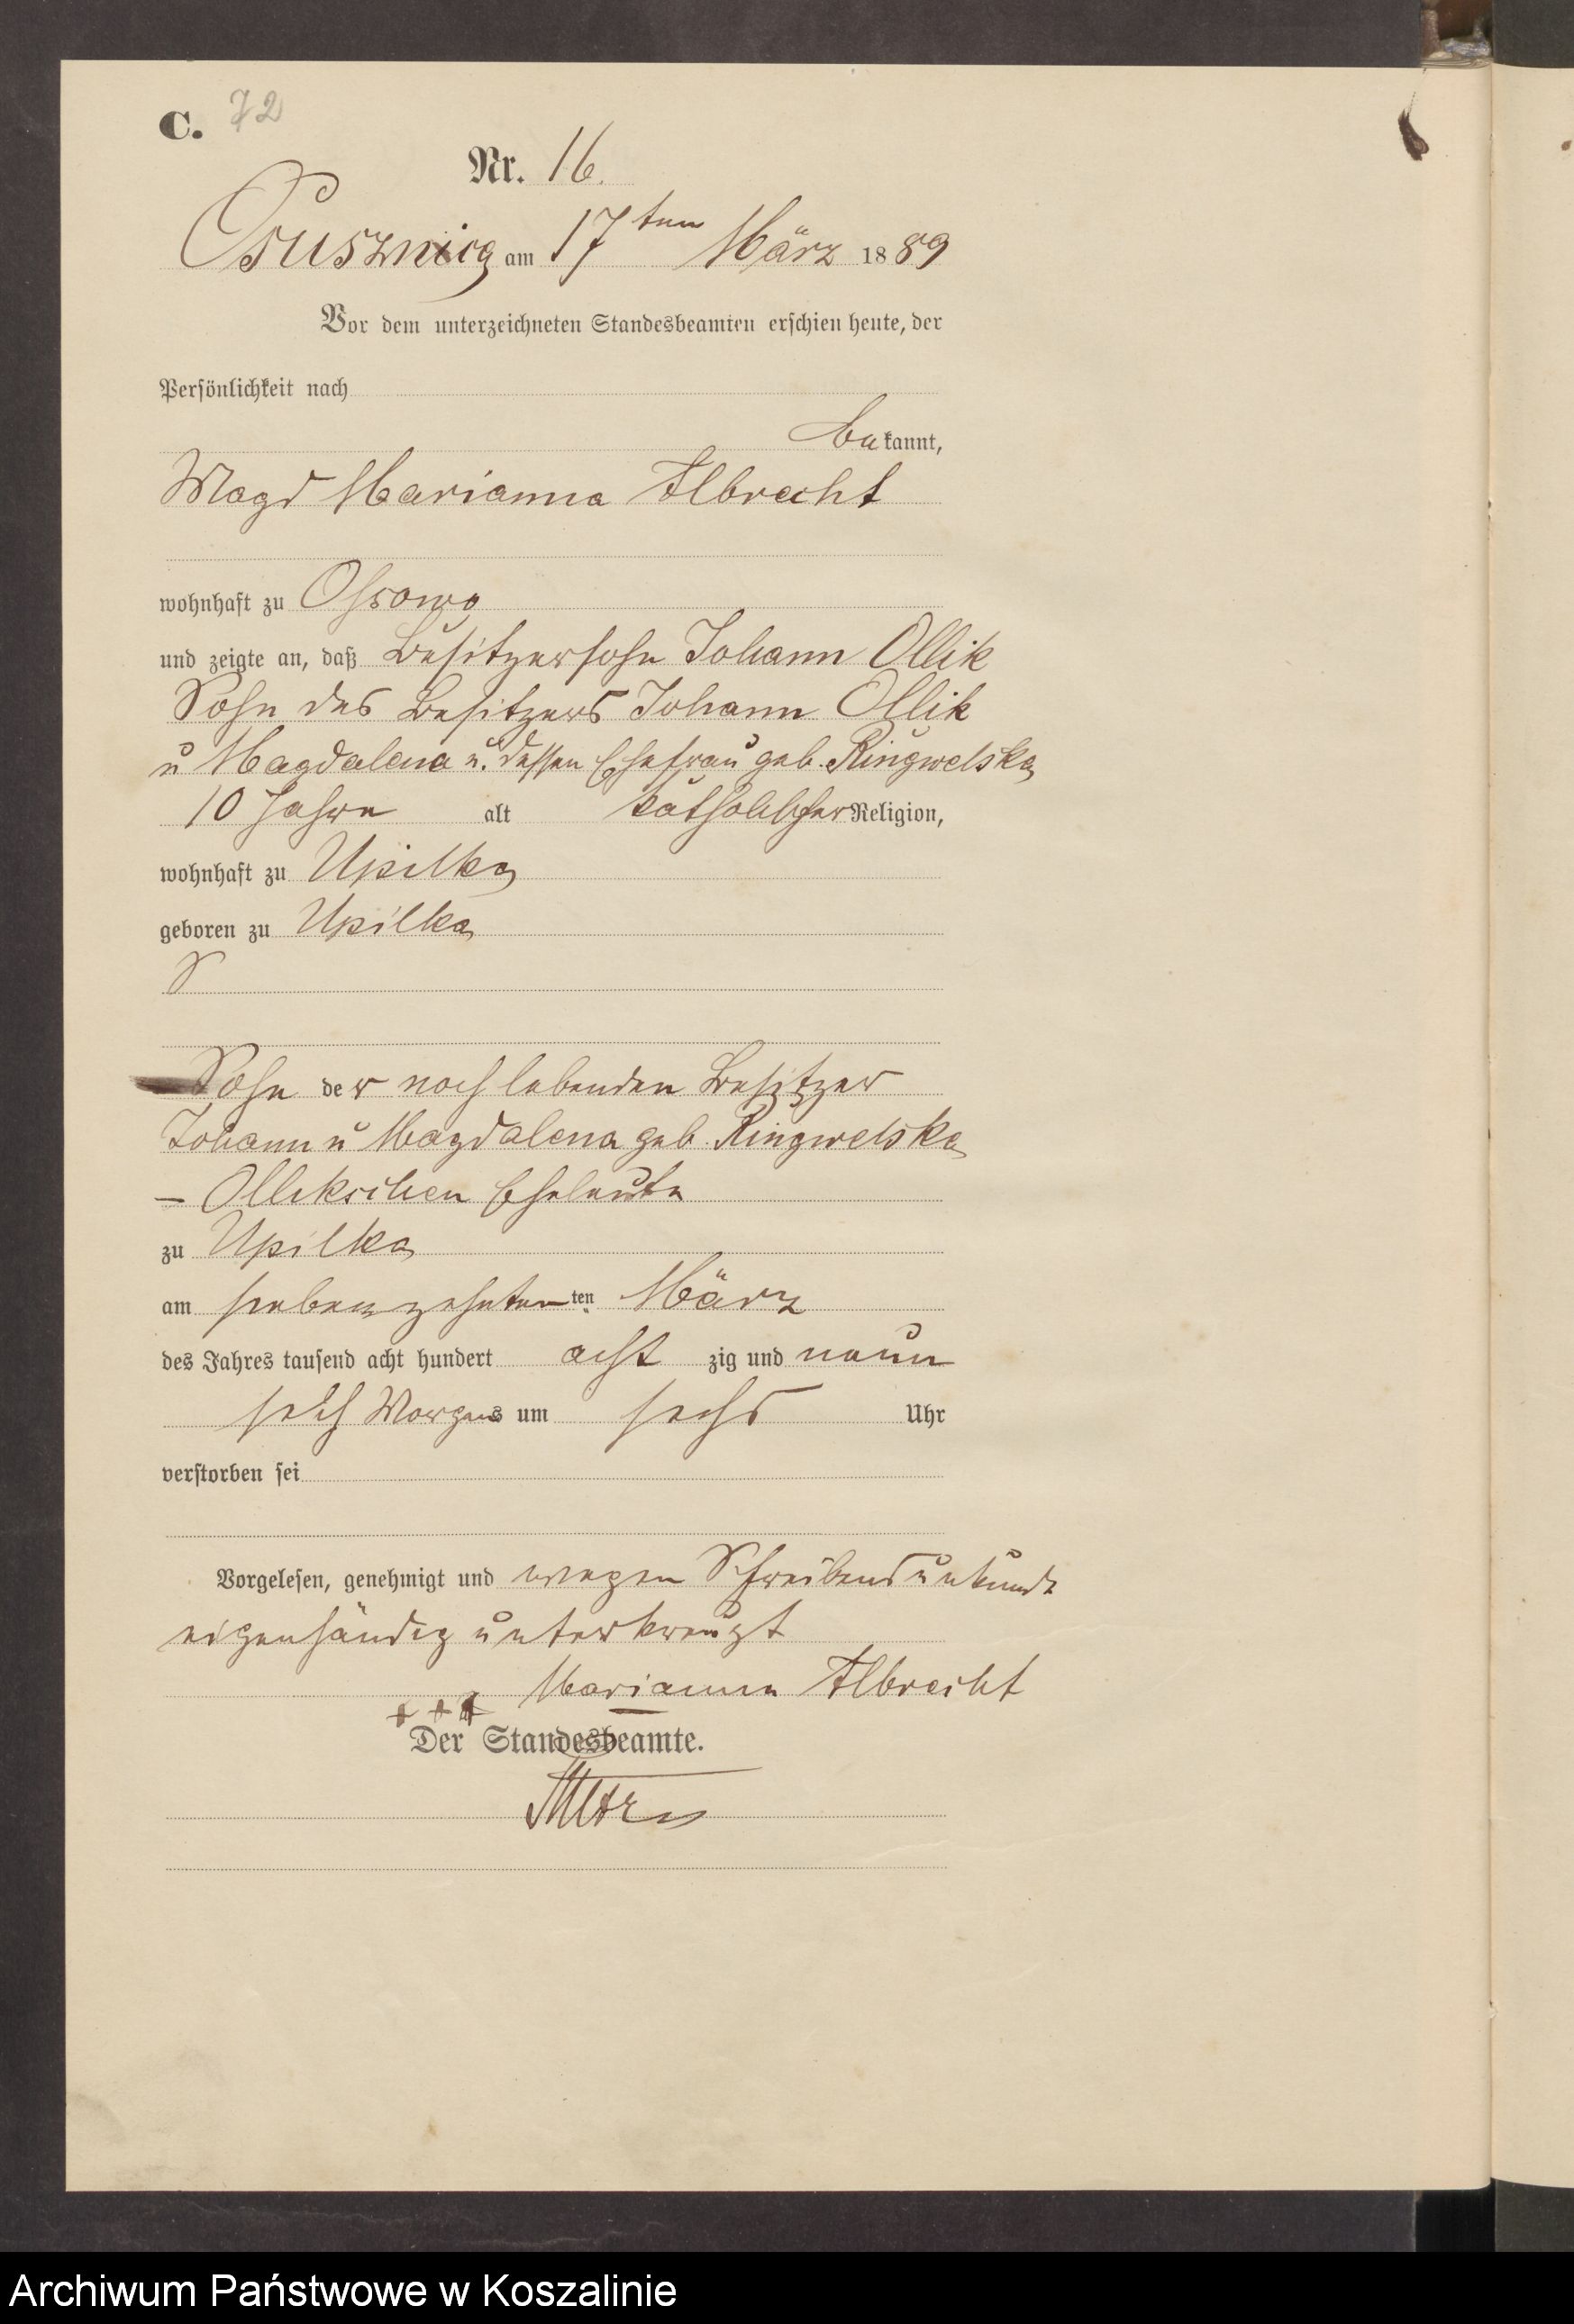 C. 72
Nr. 16.
am 17ten März 1889
Vor dem unterzeichneten Standesbeamten erschien heute, der
Persönlichkeit nach
bekannt,
Magd Marianna Albrecht
wohnhaft zu Ossowo
und zeigte an, daß Besitzersohn Johann Ollik
Sohn des Besitzers Johann Ollik
u Magdalena u. dessen Ehefrau geb. Ringwelska
10 Jahre alt katholischer Religion,
wohnhaft zu Upilka
geboren zu Upilka
S
Sohn der noch lebenden Besitzer
Johann u Magdalena geb. Ringwelska
– Ollikschen Eheleute
zu Upilka
am siebenzehnten ten März
des Jahres tausend acht hundert acht zig und neun
Morgens um sechs Uhr
verstorben sei
Vorgelesen, genehmigt und wegen Schreibensunkunde
eigenhändig unterkreuzt
+++ Marianna Albrecht
Der Standesbeamte.
Archiwum Państwowe w Koszalinie